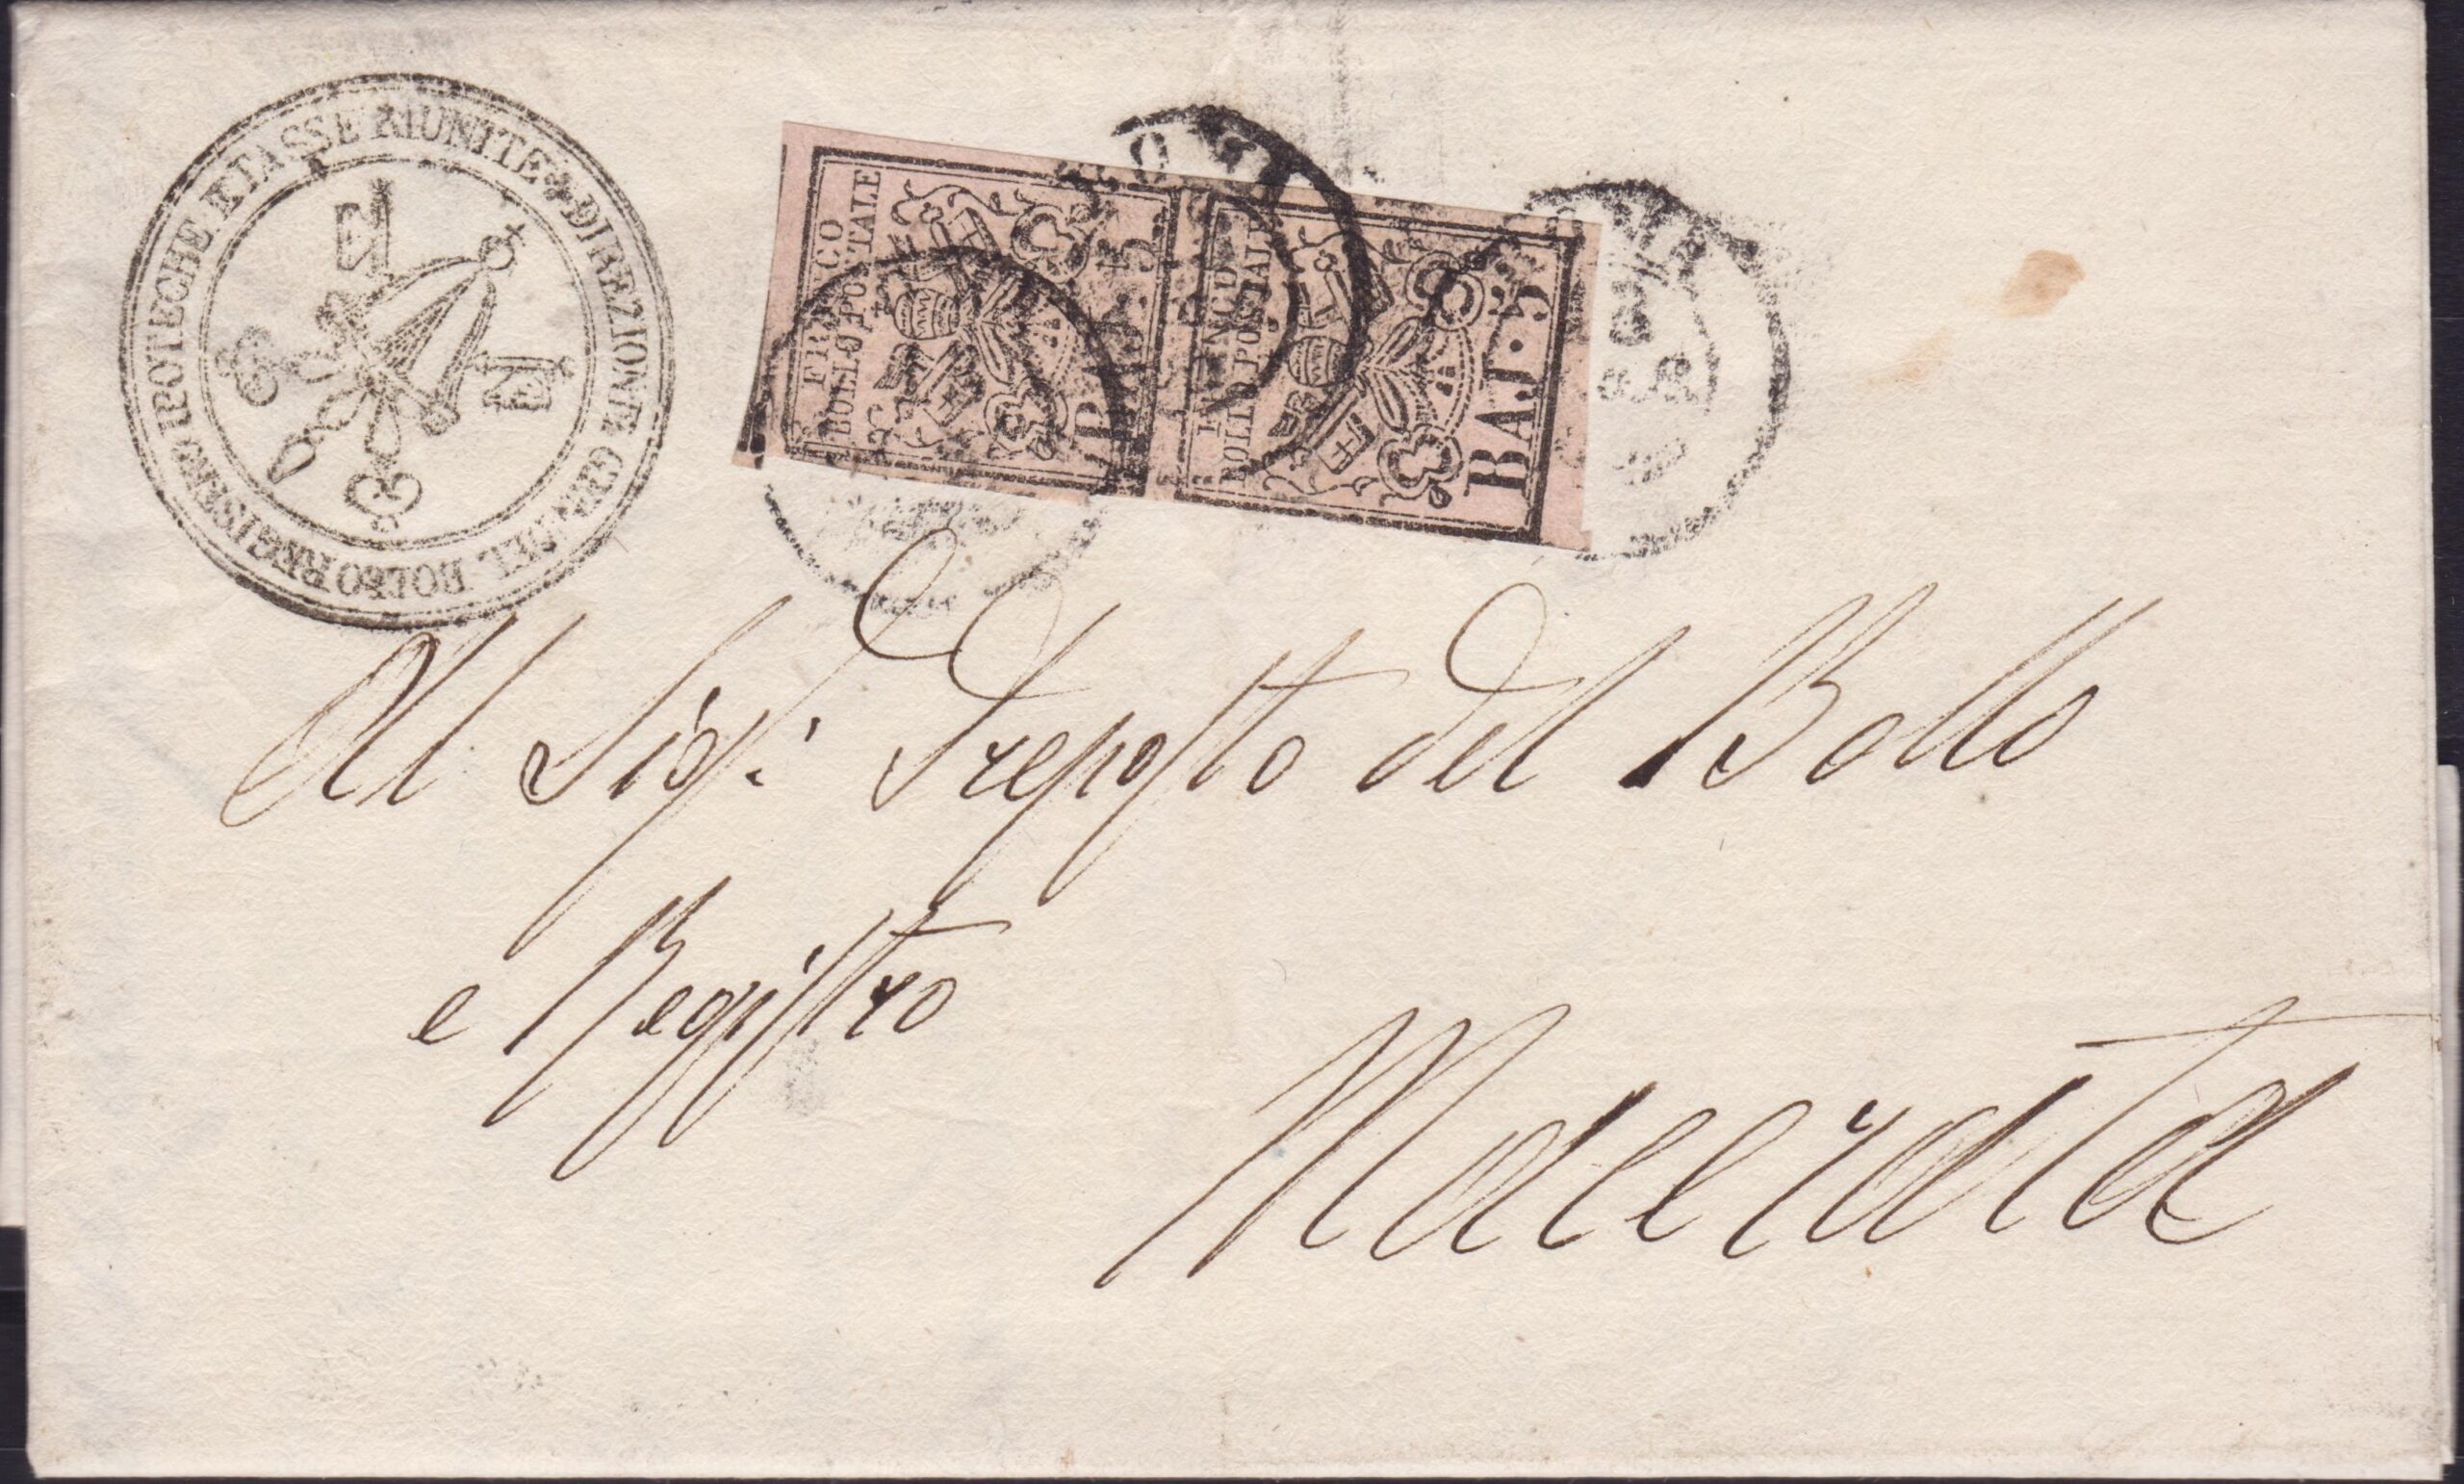 DIREZIONE GEN. DEL BOLLO REGISTRO IPOTECHE E TASSE RIUNITE
FRANCO
BOLLO POSTALE
BAJ. 5
FRANCO
BOLLO POSTALE
BAJ. 5
ROMA
ROMA
Al Sigr: Preposto del Bollo
e Registro
Macerata